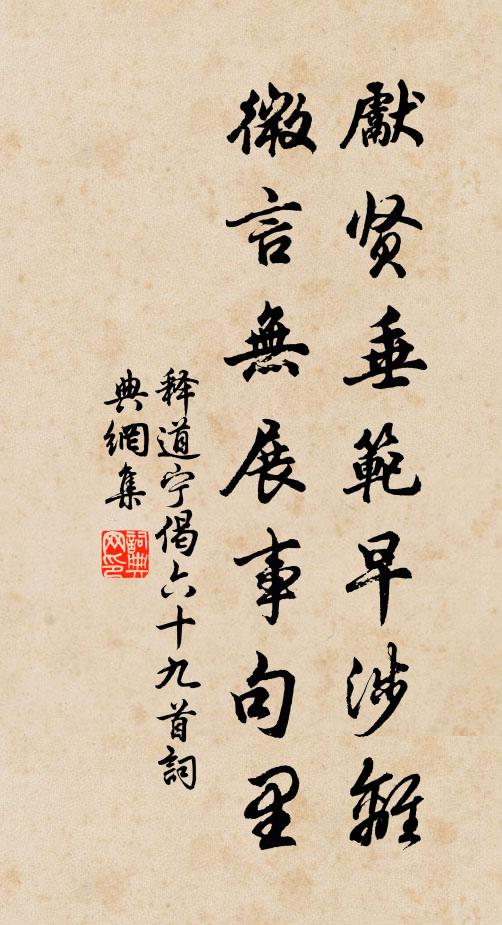 獻贤垂範早涉離
微言無展事句里
释道宁偈六十九首詞
典網集
詞典网印